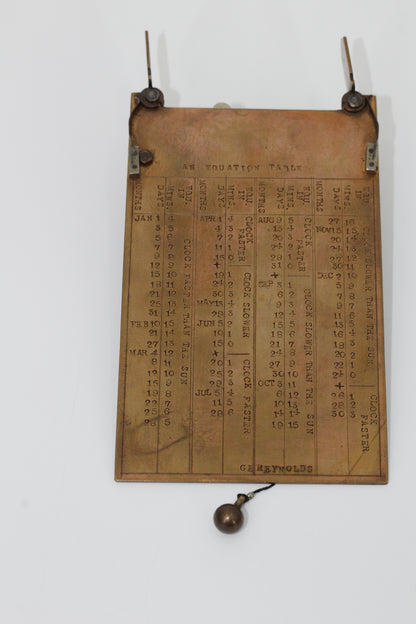 AN EQUATION TABLE
MONTHS DAYS MINS. IN EQU.
JAN 1 4
3 5
5 6
7 7
9 8
12 9
15 10
18 11
21 12
25 13
31 14
FEB 10 15
21 14
27 13
MAR 4 12
8 11
12 10
15 9
19 8
22 7
25 6
28 5
CLOCK FASTER THAN THE SUN
MONTHS DAYS MINS. IN EQU.
APR 1 4
4 3
7 2
11 1
15 0
+
19 1
24 2
30 3
MAY 13 4
29 3
JUN 5 2
10 1
15 0
+
20 1
25 2
29 3
JUL 5 4
11 5
28 6
CLOCK FASTER
CLOCK SLOWER
CLOCK FASTER
MONTHS DAYS MINS. IN EQU.
AUG 9 5
15 4
20 3
24 2
28 1
31 0
+
SEP 3 1
6 2
9 3
12 4
15 5
18 6
21 7
24 8
27 9
30 10
OCT 3 11
6 12
10 13
14 14
19 15
CLOCK FASTER
CLOCK SLOWER THAN THE SUN
MONTHS DAYS MINS. IN EQU.
27 16
NOV 15 15
20 14
24 13
27 12
30 11
DEC 2 10
5 9
7 8
9 7
11 6
13 5
16 4
18 3
20 2
22 1
24 0
+
26 1
28 2
30 3
CLOCK SLOWER THAN THE SUN
CLOCK FASTER
G E REYNOLDS